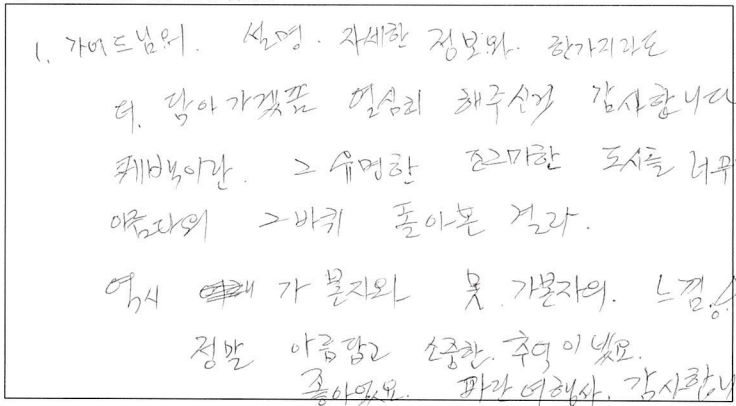 1. 가이드님의. 설명. 자세한 정보와. 한가지라도
더. 담아가겠끔 열심히 해주신것 감사합니다
퀘백이란. 그 유명한 조그마한 도시를 너무
그바퀴 돌아본 결과.
역시 가본자와 못 가본자의. 느낌.
정말 아름답고 소중한. 추억이 됐요.
좋아었요. 파란여행사. 감사합니